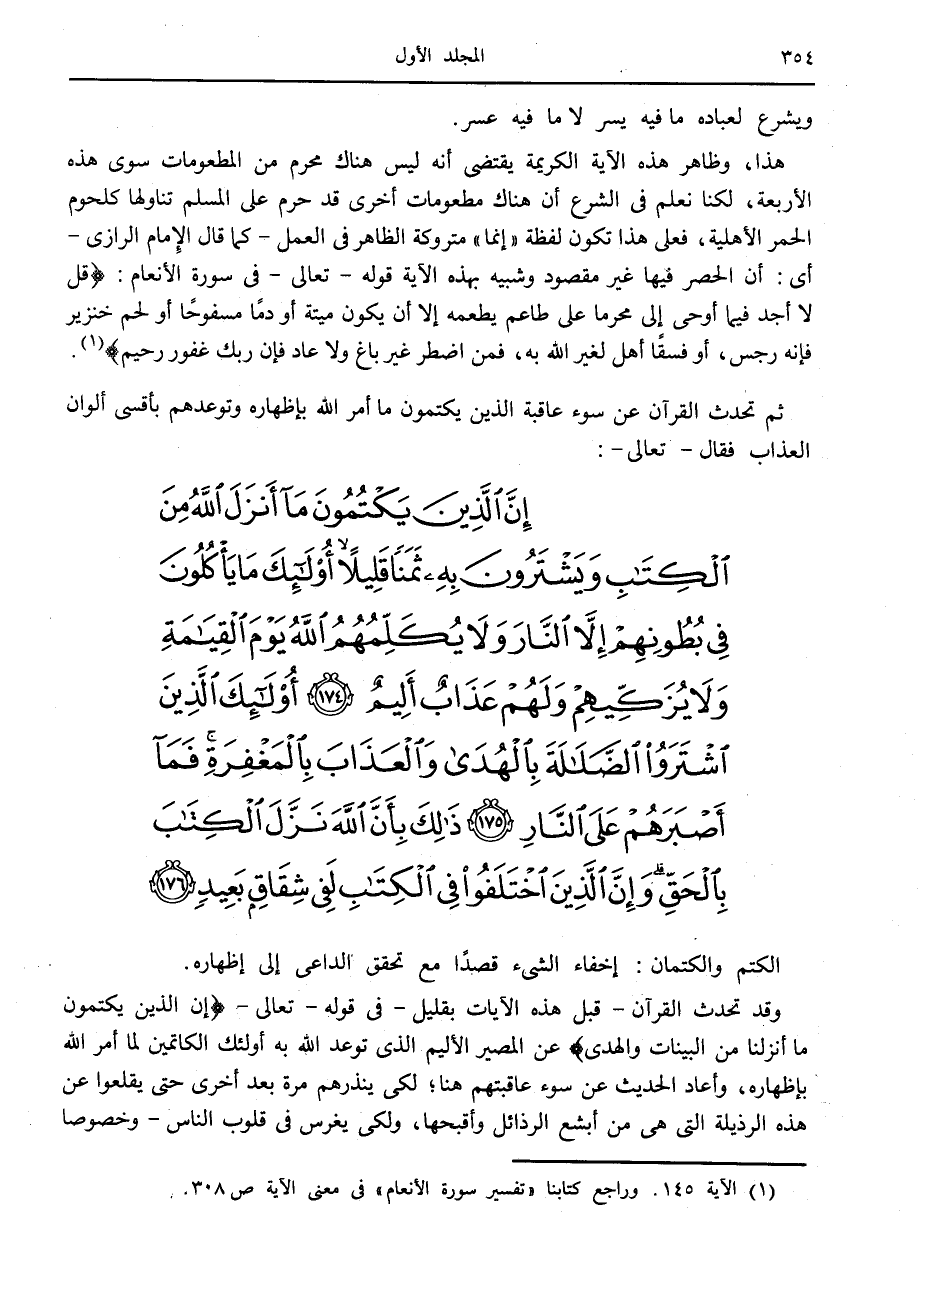 ٣٥٤ المجلد الأول
ويشرع لعباده ما فيه يسر لا ما فيه عسر.
هذا، وظاهر هذه الآية الكريمة يقتضى أنه ليس هناك محرم من المطعومات سوى هذه
الأربعة، لكنا نعلم فى الشرع أن هناك مطعومات أخرى قد حرم على المسلم تناولها كلحوم
الحمر الأهلية، فعلى هذا تكون لفظة «إنما» متروكة الظاهر فى العمل - كما قال الإمام الرازى -
أى: أن الحصر فيها غير مقصود وشبيه بهذه الآية قوله - تعالى - فى سورة الأنعام: ﴿قل
لا أجد فيما أوحى إلى محرما على طاعم يطعمه إلا أن يكون ميتة أو دمًا مسفوحًا أو لحم خنزير
فإنه رجس، أو فسقًا أهل لغير الله به، فمن اضطر غير باغ ولا عاد فإن ربك غفور رحيم﴾(١).
ثم تحدث القرآن عن سوء عاقبة الذين يكتمون ما أمر الله بإظهاره وتوعدهم بأقسى ألوان
العذاب فقال - تعالى -:
إِنَّ ٱلَّذِينَ يَكْتُمُونَ مَآ أَنزَلَ ٱللَّهُ مِنَ
ٱلْكِتَٰبِ وَيَشْتَرُونَ بِهِۦ ثَمَنًا قَلِيلًا ۙ أُو۟لَٰٓئِكَ مَا يَأْكُلُونَ
فِى بُطُونِهِمْ إِلَّا ٱلنَّارَ وَلَا يُكَلِّمُهُمُ ٱللَّهُ يَوْمَ ٱلْقِيَٰمَةِ
وَلَا يُزَكِّيهِمْ وَلَهُمْ عَذَابٌ أَلِيمٌ ١٧٤ أُو۟لَٰٓئِكَ ٱلَّذِينَ
ٱشْتَرَوُا۟ ٱلضَّلَٰلَةَ بِٱلْهُدَىٰ وَٱلْعَذَابَ بِٱلْمَغْفِرَةِ ۚ فَمَآ
أَصْبَرَهُمْ عَلَى ٱلنَّارِ ١٧٥ ذَٰلِكَ بِأَنَّ ٱللَّهَ نَزَّلَ ٱلْكِتَٰبَ
بِٱلْحَقِّ ۗ وَإِنَّ ٱلَّذِينَ ٱخْتَلَفُوا۟ فِى ٱلْكِتَٰبِ لَفِى شِقَاقٍۭ بَعِيدٍ ١٧٦
الكتم والكتمان: إخفاء الشىء قصدًا مع تحقق الداعى إلى إظهاره.
وقد تحدث القرآن - قبل هذه الآيات بقليل - فى قوله - تعالى - ﴿إن الذين يكتمون
ما أنزلنا من البينات والهدى﴾ عن المصير الأليم الذى توعد الله به أولئك الكاتمين لما أمر الله
بإظهاره، وأعاد الحديث عن سوء عاقبتهم هنا؛ لكى ينذرهم مرة بعد أخرى حتى يقلعوا عن
هذه الرذيلة التى هى من أبشع الرذائل وأقبحها، ولكى يغرس فى قلوب الناس - وخصوصا
(١) الآية ١٤٥. وراجع كتابنا «تفسير سورة الأنعام» فى معنى الآية ص ٣٠٨.